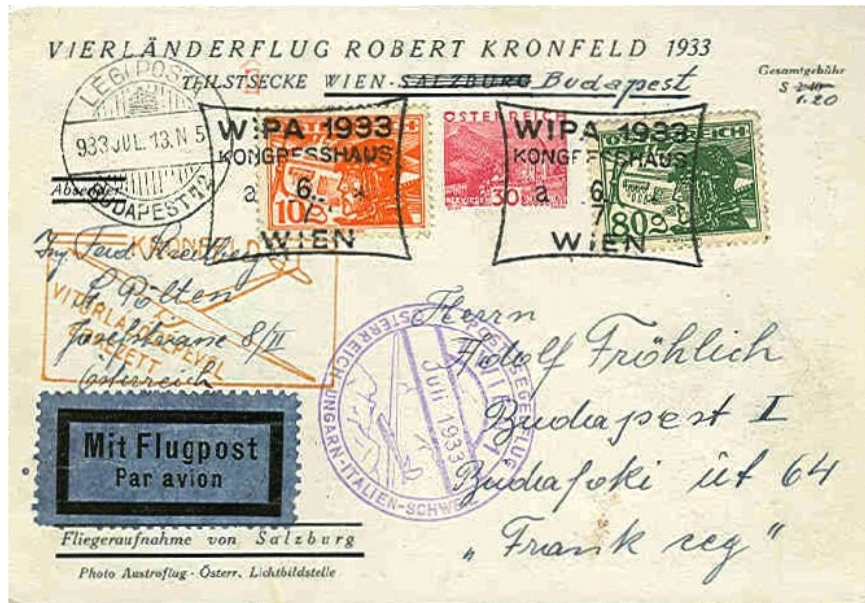 VIERLÄNDERFLUG ROBERT KRONFELD 1933
TEILSTSECKE WIEN-SALZBURG Budapest
Gesamtgebühr
S 2.40
1.20
LÉGI POSTA
933 JUL. 13. N 5
BUDAPEST 72
WIPA 1933
KONGRESSHAUS
a 6. *
7
WIEN
10
ÖSTERREICH
30
WIPA 1933
KONGRESSHAUS
a 6.
7
WIEN
ÖSTERREICH
80
Absender
KRONFELD
VITORLÁZÓGÉPÉVEL
Ing. Ferd.
St. Pölten
Josefstrasse 8/II
Österreich
POSTSEGELFLUG
WIEN
Juli 1933
ÖSTERREICH-UNGARN-ITALIEN-SCHWEIZ
Herrn
Adolf Fröhlich
Budapest I
Budafoki út 64
"Frank ceg"
Mit Flugpost
Par avion
Fliegeraufnahme von Salzburg
Photo Austroflug - Österr. Lichtbildstelle